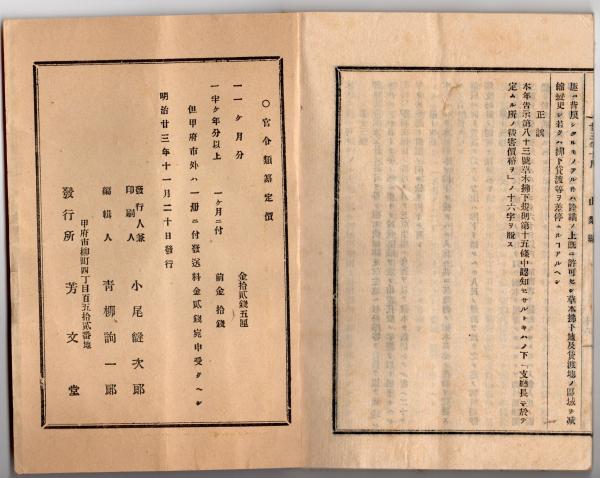 ノ上既ニ許可セシ草木拂下地及貸渡地ノ區域ヲ減
正誤
本年告示第八十三號草木拂下規則第十五條中認知セサルトキハノ下「支廳長ニ於テ
定ムル所ノ損害價格ヲ」ノ十六字ヲ脱ス
〇官令類纂定價
一一ヶ月分 金拾貳錢五厘
一半ヶ年分以上 一ヶ月ニ付 前金 拾錢
但甲府市外ハ一册ニ付發送料金貳錢宛申受クヘシ
明治廿三年十一月二十日發行
發行人兼印刷人 小尾縫次郎
編輯人 青柳詢一郎
甲府市柳町四丁目百五拾貳番地
發行所 芳文堂